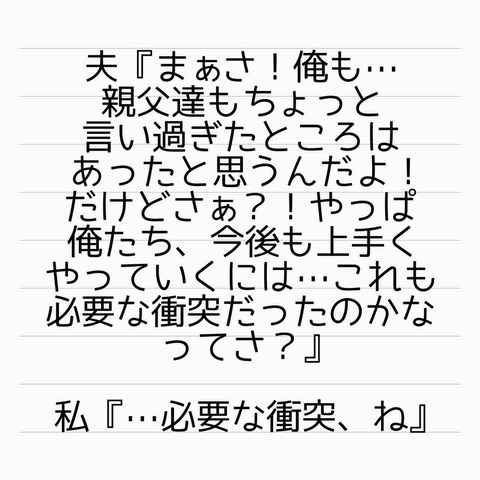 夫『まぁさ！俺も…
親父達もちょっと
言い過ぎたところは
あったと思うんだよ！
だけどさぁ？！やっぱ
俺たち、今後も上手く
やっていくには…これも
必要な衝突だったのかな
ってさ？』
私『…必要な衝突、ね』